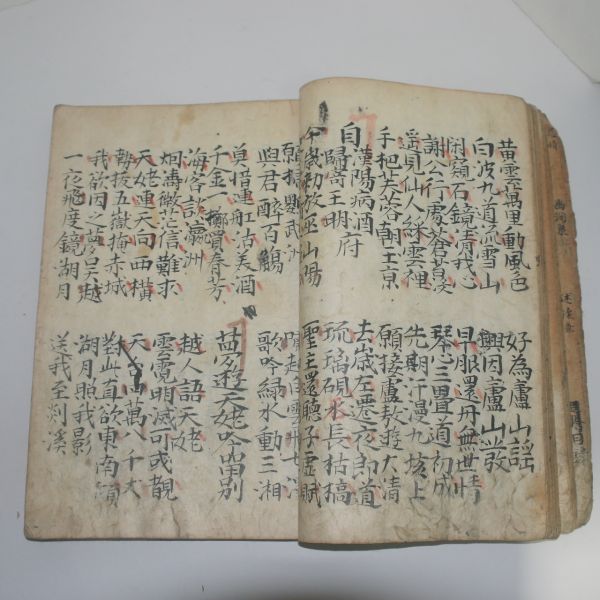 黃雲萬里動風色
白波九道流雪山
好為廬山謠
興因廬山發
閑窺石鏡清我心
謝公行處蒼苔
早服還丹無世情
琴心三疊道初成
遙見仙人綵雲裡
手把芙蓉朝玉京
先期汗漫九垓上
願接盧敖遊太清
自漢陽病酒
歸寄王明府
去歲左遷夜郎道
琉璃硯水長枯槁
今歲勅放巫山陽
聖主還聽子虛賦
願掃鸚武洲
與君醉百觴
起白雲飛七
歌吟綠水動三湘
莫惜連舡沽美酒
千金一擲買春芳
夢遊天姥吟留別
海客談瀛洲
烟濤微茫信難求
越人語天姥
雲霓明滅可或覩
天姥連天向西橫
勢拔五嶽掩赤城
天台四萬八千丈
對此直欲東南傾
我欲因之夢吳越
一夜飛度鏡湖月
湖月照我影
送我至剡溪